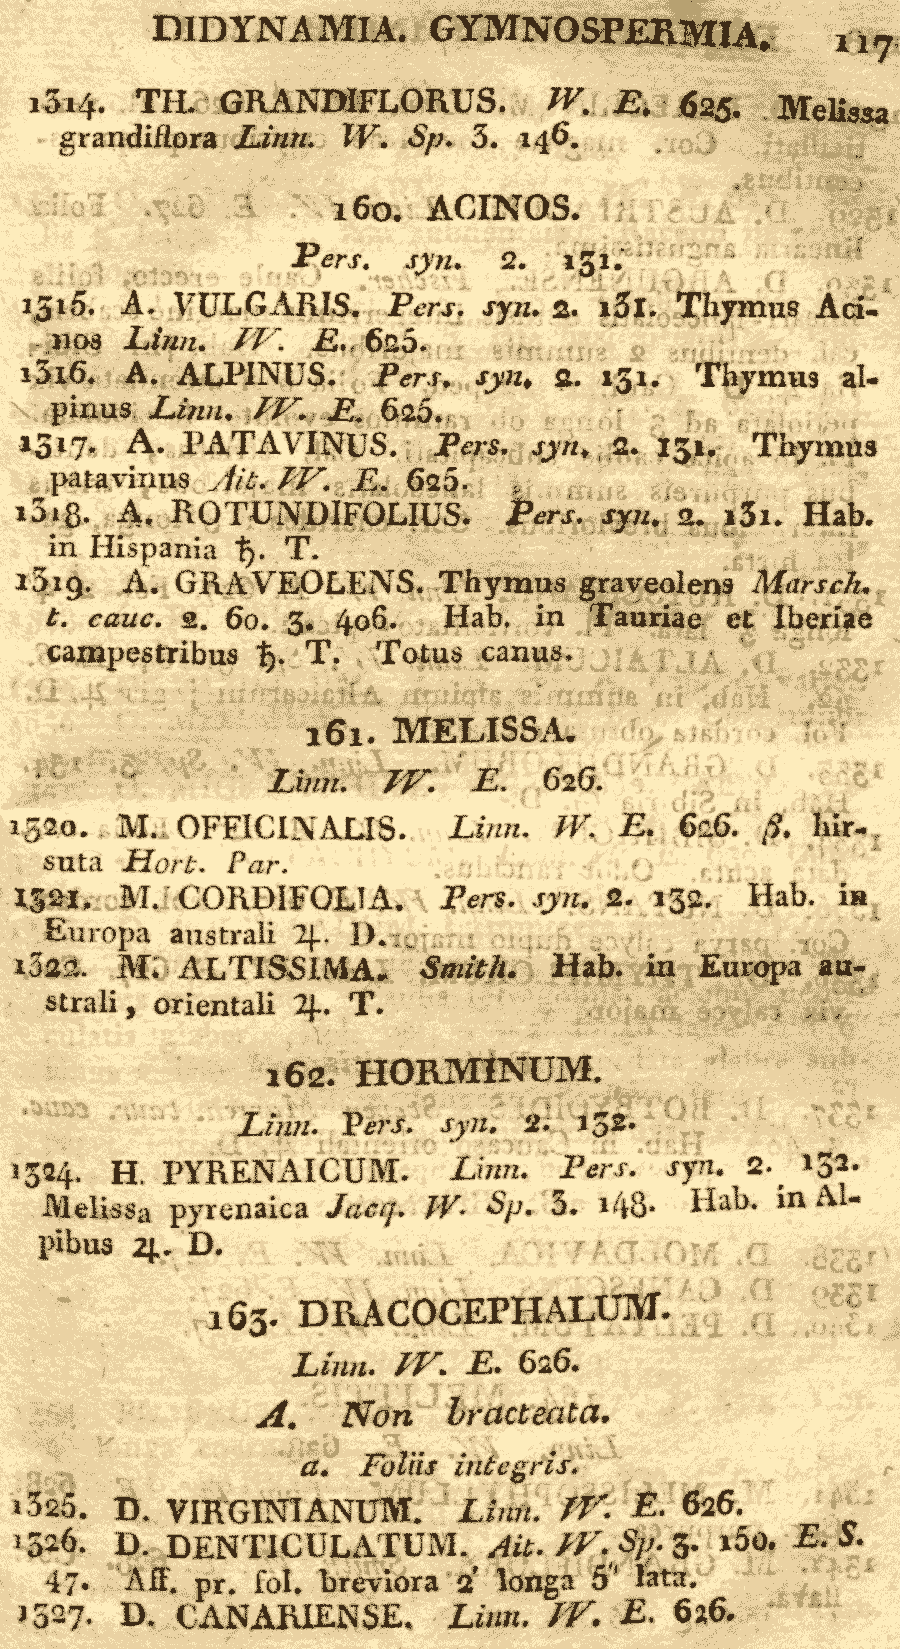 DIDYNAMIA. GYMNOSPERMIA. 117
1314. TH. GRANDIFLORUS. W. E. 625. Melissa
grandiflora Linn. W. Sp. 3. 146.
160. ACINOS.
Pers. syn. 2. 131.
1315. A. VULGARIS. Pers. syn. 2. 131. Thymus Aci-
nos Linn. W. E. 625.
1316. A. ALPINUS. Pers. syn. 2. 131. Thymus al-
pinus Linn. W. E. 625.
1317. A. PATAVINUS. Pers. syn. 2. 131. Thymus
patavinus Ait. W. E. 625.
1318. A. ROTUNDIFOLIUS. Pers. syn. 2. 131. Hab.
in Hispania ♄. T.
1319. A. GRAVEOLENS. Thymus graveolens Marsch.
t. cauc. 2. 60. 3. 406. Hab. in Tauriae et Iberiae
campestribus ♄. T. Totus canus.
161. MELISSA.
Linn. W. E. 626.
1320. M. OFFICINALIS. Linn. W. E. 626. β. hir-
suta Hort. Par.
1321. M. CORDIFOLIA. Pers. syn. 2. 132. Hab. in
Europa australi ♃. D.
1322. M. ALTISSIMA. Smith. Hab. in Europa au-
strali, orientali ♃. T.
162. HORMINUM.
Linn. Pers. syn. 2. 132.
1324. H. PYRENAICUM. Linn. Pers. syn. 2. 132.
Melissa pyrenaica Jacq. W. Sp. 3. 148. Hab. in Al-
pibus ♃. D.
163. DRACOCEPHALUM.
Linn. W. E. 626.
A. Non bracteata.
a. Foliis integris.
1325. D. VIRGINIANUM. Linn. W. E. 626.
1326. D. DENTICULATUM. Ait. W. Sp. 3. 150. E. S.
47. Aff. pr. fol. breviora 2' longa 5" lata.
1327. D. CANARIENSE. Linn. W. E. 626.